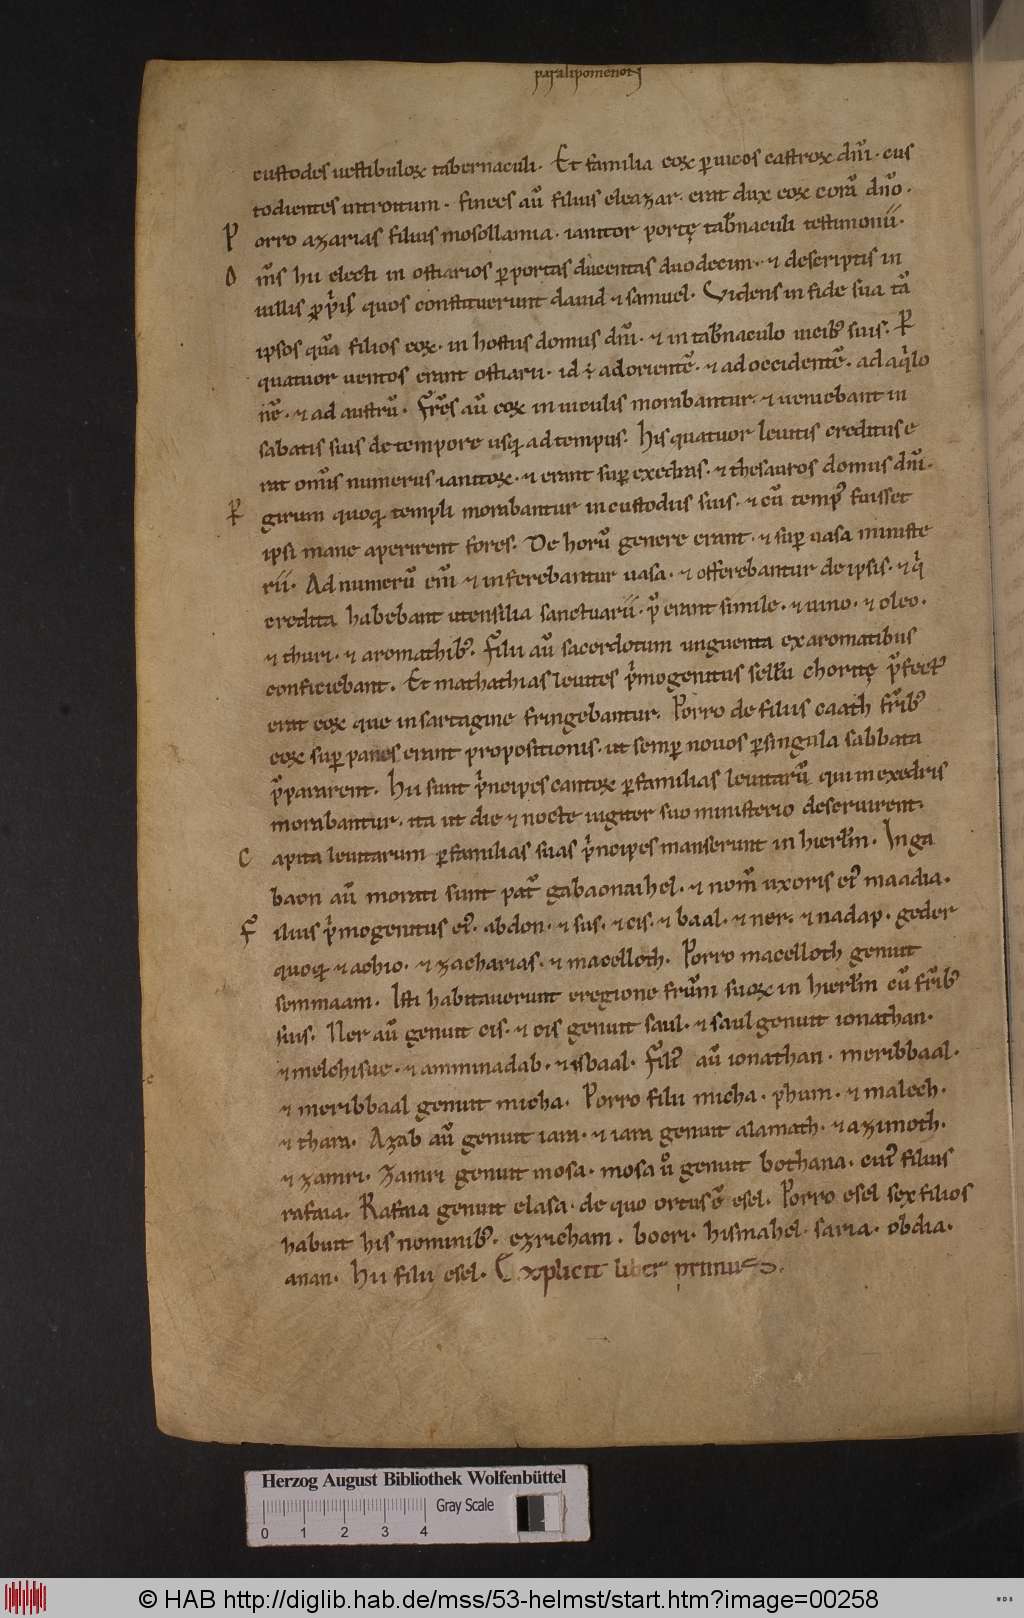 paralipomenoꝝ
custodes uestibuloꝝ tabernaculi. Et familia eoꝝ ꝑ uicos castroꝝ dn̄i. cus
todientes introitum. finees aū filius eleazar. erat dux eoꝝ corā dn̄o.
Porro azarias filius mosollamia. ianitor portę tab̄naculi testimonii.
Om̄s hii electi in ostiarios ꝑ portas ducentas duodecim. ⁊ descriptis in
uillis ꝓpriis quos constituerunt dauid ⁊ samuel. Uidens in fide sua tā
ipsos quā filios eoꝝ. in hostiis domus dn̄i. ⁊ in tab̄naculo uicib; suis. P̄
quatuor uentos erant ostiarii. id ÷ ad orientē. ⁊ ad occidentē. ad aqͥlo
nē. ⁊ ad austrū. Fr̄es aū eoꝝ in uiculis morabantur. ⁊ ueniebant in
sabatis suis de tempore usq; ad tempus. His quatuor leuitis creditus e
rat om̄is numerus ianitoꝝ. ⁊ erant suꝑ exedras. ⁊ thesauros domus dn̄i.
P̄ girum quoq; templi morabantur in custodiis suis. ⁊ cū temp; fuisset
ipsi mane aperirent fores. De horū genere erant. ⁊ suꝑ uasa ministe
rii. Ad numerū em̄ ⁊ inferebantur uasa. ⁊ offerebantur de ipsis. ⁊ qͥ
credita habebant utensilia sanctuarii. p̄erant simile. ⁊ uino. ⁊ oleo.
⁊ thuri. ⁊ aromathib;. Filii aū sacerdotum unguenta ex aromatibus
conficiebant. Et mathathias leuites pͥmogenitus sellū choritę p̄fect;
erat eoꝝ que in sartagine fringebantur. Porro de filiis caath fr̄ib;
eoꝝ suꝑ panes erant propositionis. ut semꝑ nouos ꝑ singula sabbata
p̄pararent. Hii sunt pͥncipes cantoꝝ ꝑ familias leuitarū qui in exedris
morabantur. ita ut die ⁊ nocte iugiter suo ministerio deseruirent.
Capita leuitarum ꝑ familias suas pͥncipes manserunt in hierl̄m. In ga
baon aū morati sunt pat̄ gabaonaihel. ⁊ nom̄ uxoris ei; maadia.
Filius pͥmogenitus ei;. abdon. ⁊ sus. ⁊ cis. ⁊ baal. ⁊ ner. ⁊ nadap. geder
quoq; ⁊ achio. ⁊ zacharias. ⁊ macelloth. Porro macelloth genuit
semmaam. Isti habitauerunt e regione fr̄um suoꝝ in hierl̄m cū fr̄ib;
suis. Ner aū genuit cis. ⁊ cis genuit saul. ⁊ saul genuit ionathan.
⁊ melchisue. ⁊ amminadab. ⁊ isbaal. Fili; aū ionathan. meribbaal.
⁊ meribbaal genuit micha. Porro filii micha. phum. ⁊ malech.
⁊ thara. Azab aū genuit iara. ⁊ iara genuit alamath. ⁊ azimoth.
⁊ zamri. Zamri genuit mosa. mosa ū genuit bothana. cui; filius
rafaia. Rafaia genuit elasa. de quo ortus ē esel. Porro esel sex filios
habuit his nominib;. ezricham. bocri. hismahel. saria. obdia.
anan. Hii filii esel. Explicit liber primus.
Herzog August Bibliothek Wolfenbüttel
Gray Scale
0 1 2 3 4
© HAB http://diglib.hab.de/mss/53-helmst/start.htm?image=00258